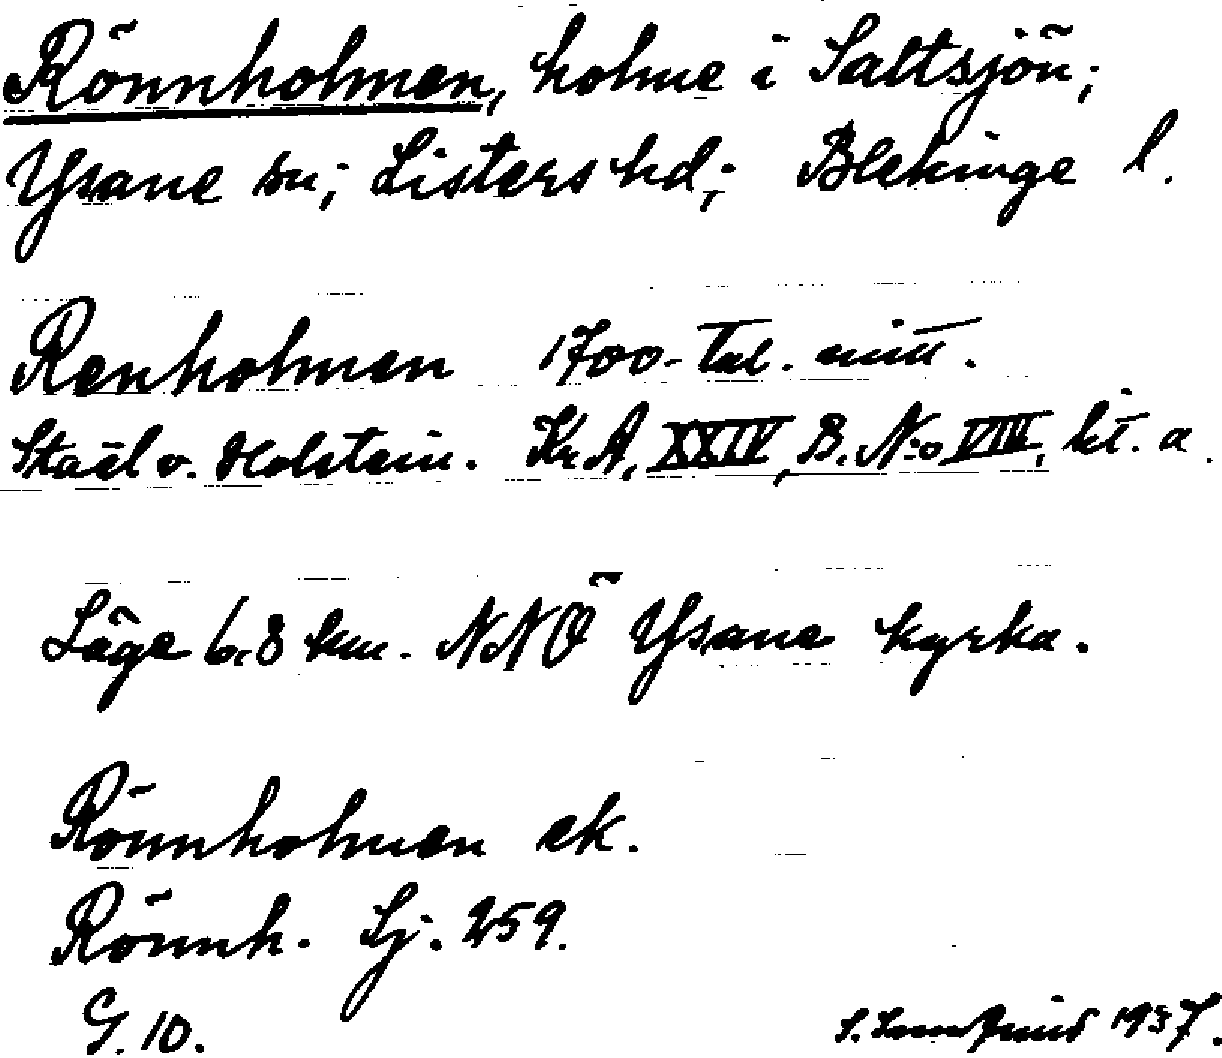 Rönnholmen, holme i Saltsjön;
Ysane sn; Listers hd; Blekinge l.
Renholmen 1700-tal. mitt.
Staël v. Holstein. Kr.A, XXIV, B. N:o VIII, lit. a.
Läge 6.8 km. NNÖ Ysane kyrka.
Rönnholmen ek.
Rönnh. Sj. 259.
G. 10.
S. 1937.